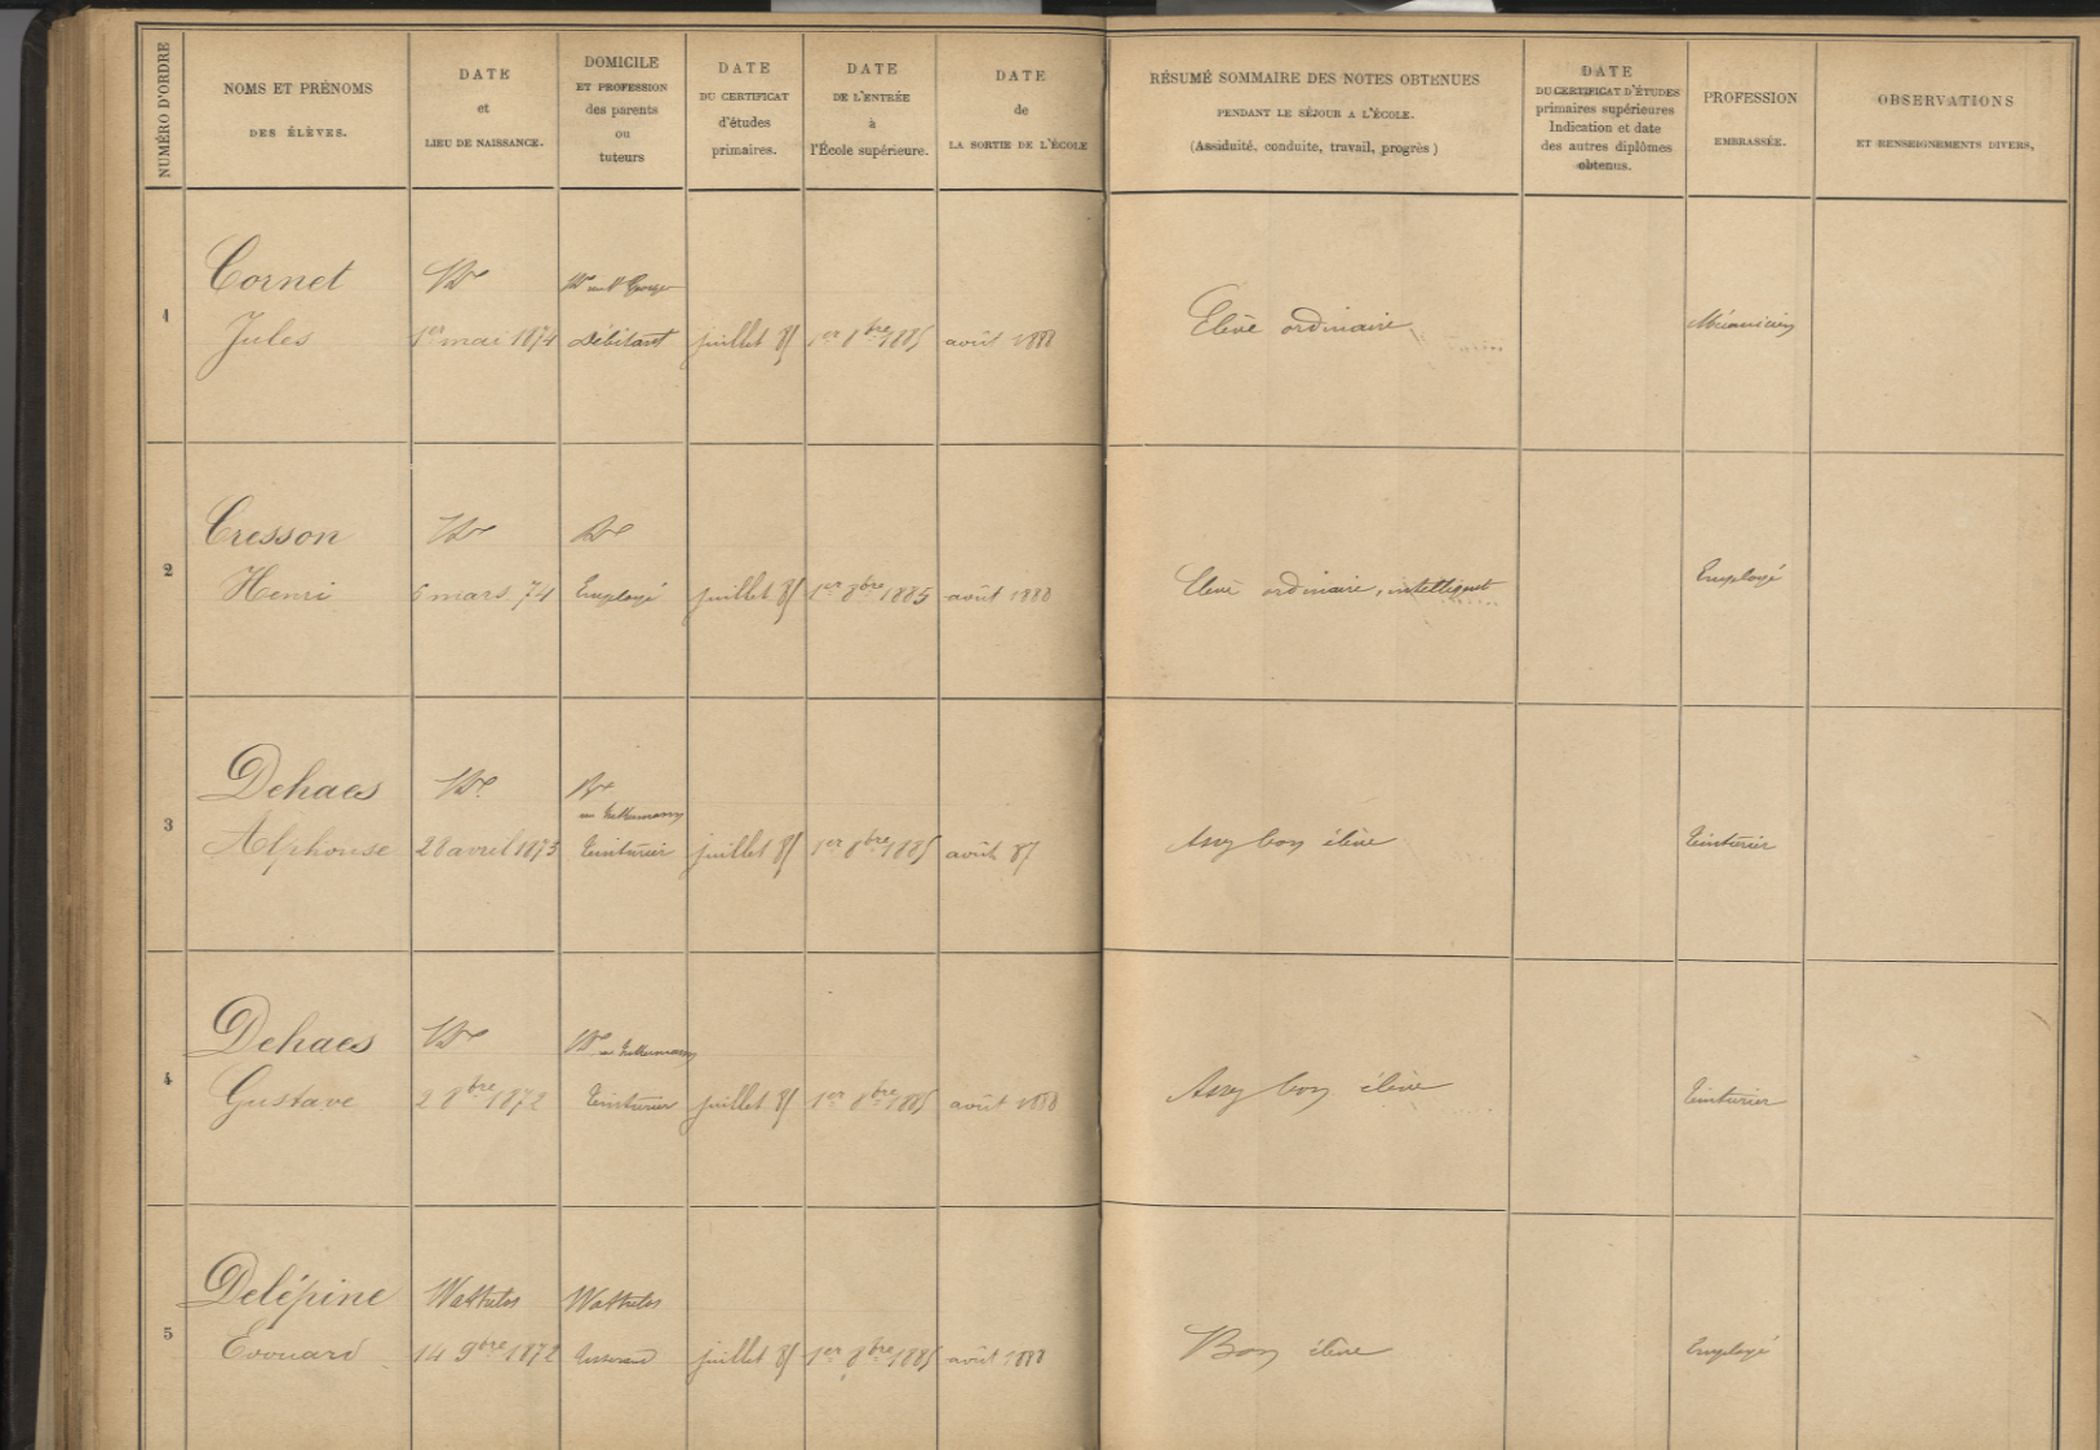 NUMÉRO D'ORDRE
NOMS ET PRÉNOMS
DES ÉLÈVES.
DATE
et
LIEU DE NAISSANCE.
DOMICILE
ET PROFESSION
des parents
ou
tuteurs
DATE
DU CERTIFICAT
d'études
primaires.
DATE
DE L'ENTRÉE
à
l'École supérieure.
DATE
de
LA SORTIE DE L'ÉCOLE
RÉSUMÉ SOMMAIRE DES NOTES OBTENUES
PENDANT LE SÉJOUR A L'ÉCOLE.
(Assiduité, conduite, travail, progrès)
DATE
DU CERTIFICAT D'ÉTUDES
primaires supérieures
Indication et date
des autres diplômes
obtenus.
PROFESSION
EMBRASSÉE.
OBSERVATIONS
ET RENSEIGNEMENTS DIVERS,
1
Cornet
Jules
1er mai 1874
Débitant
juillet 85
1er 8bre 1885
août 1888
Elève ordinaire
Mécanicien
2
Cresson
Henri
6 mars 74
Employé
juillet 85
1er 8bre 1885
août 1888
Elève ordinaire, intelligent
Employé
3
Dehaes
Alphonse
28 avril 1873
teinturier
juillet 85
1er 8bre 1885
août 87
Assez bon élève
teinturier
4
Dehaes
Gustave
2 8bre 1872
teinturier
juillet 85
1er 8bre 1885
août 1888
Assez bon élève
teinturier
5
Delépine
Edouard
Wattrelos
14 9bre 1872
Wattrelos
tisserand
juillet 85
1er 8bre 1885
août 1888
Bon élève
Employé